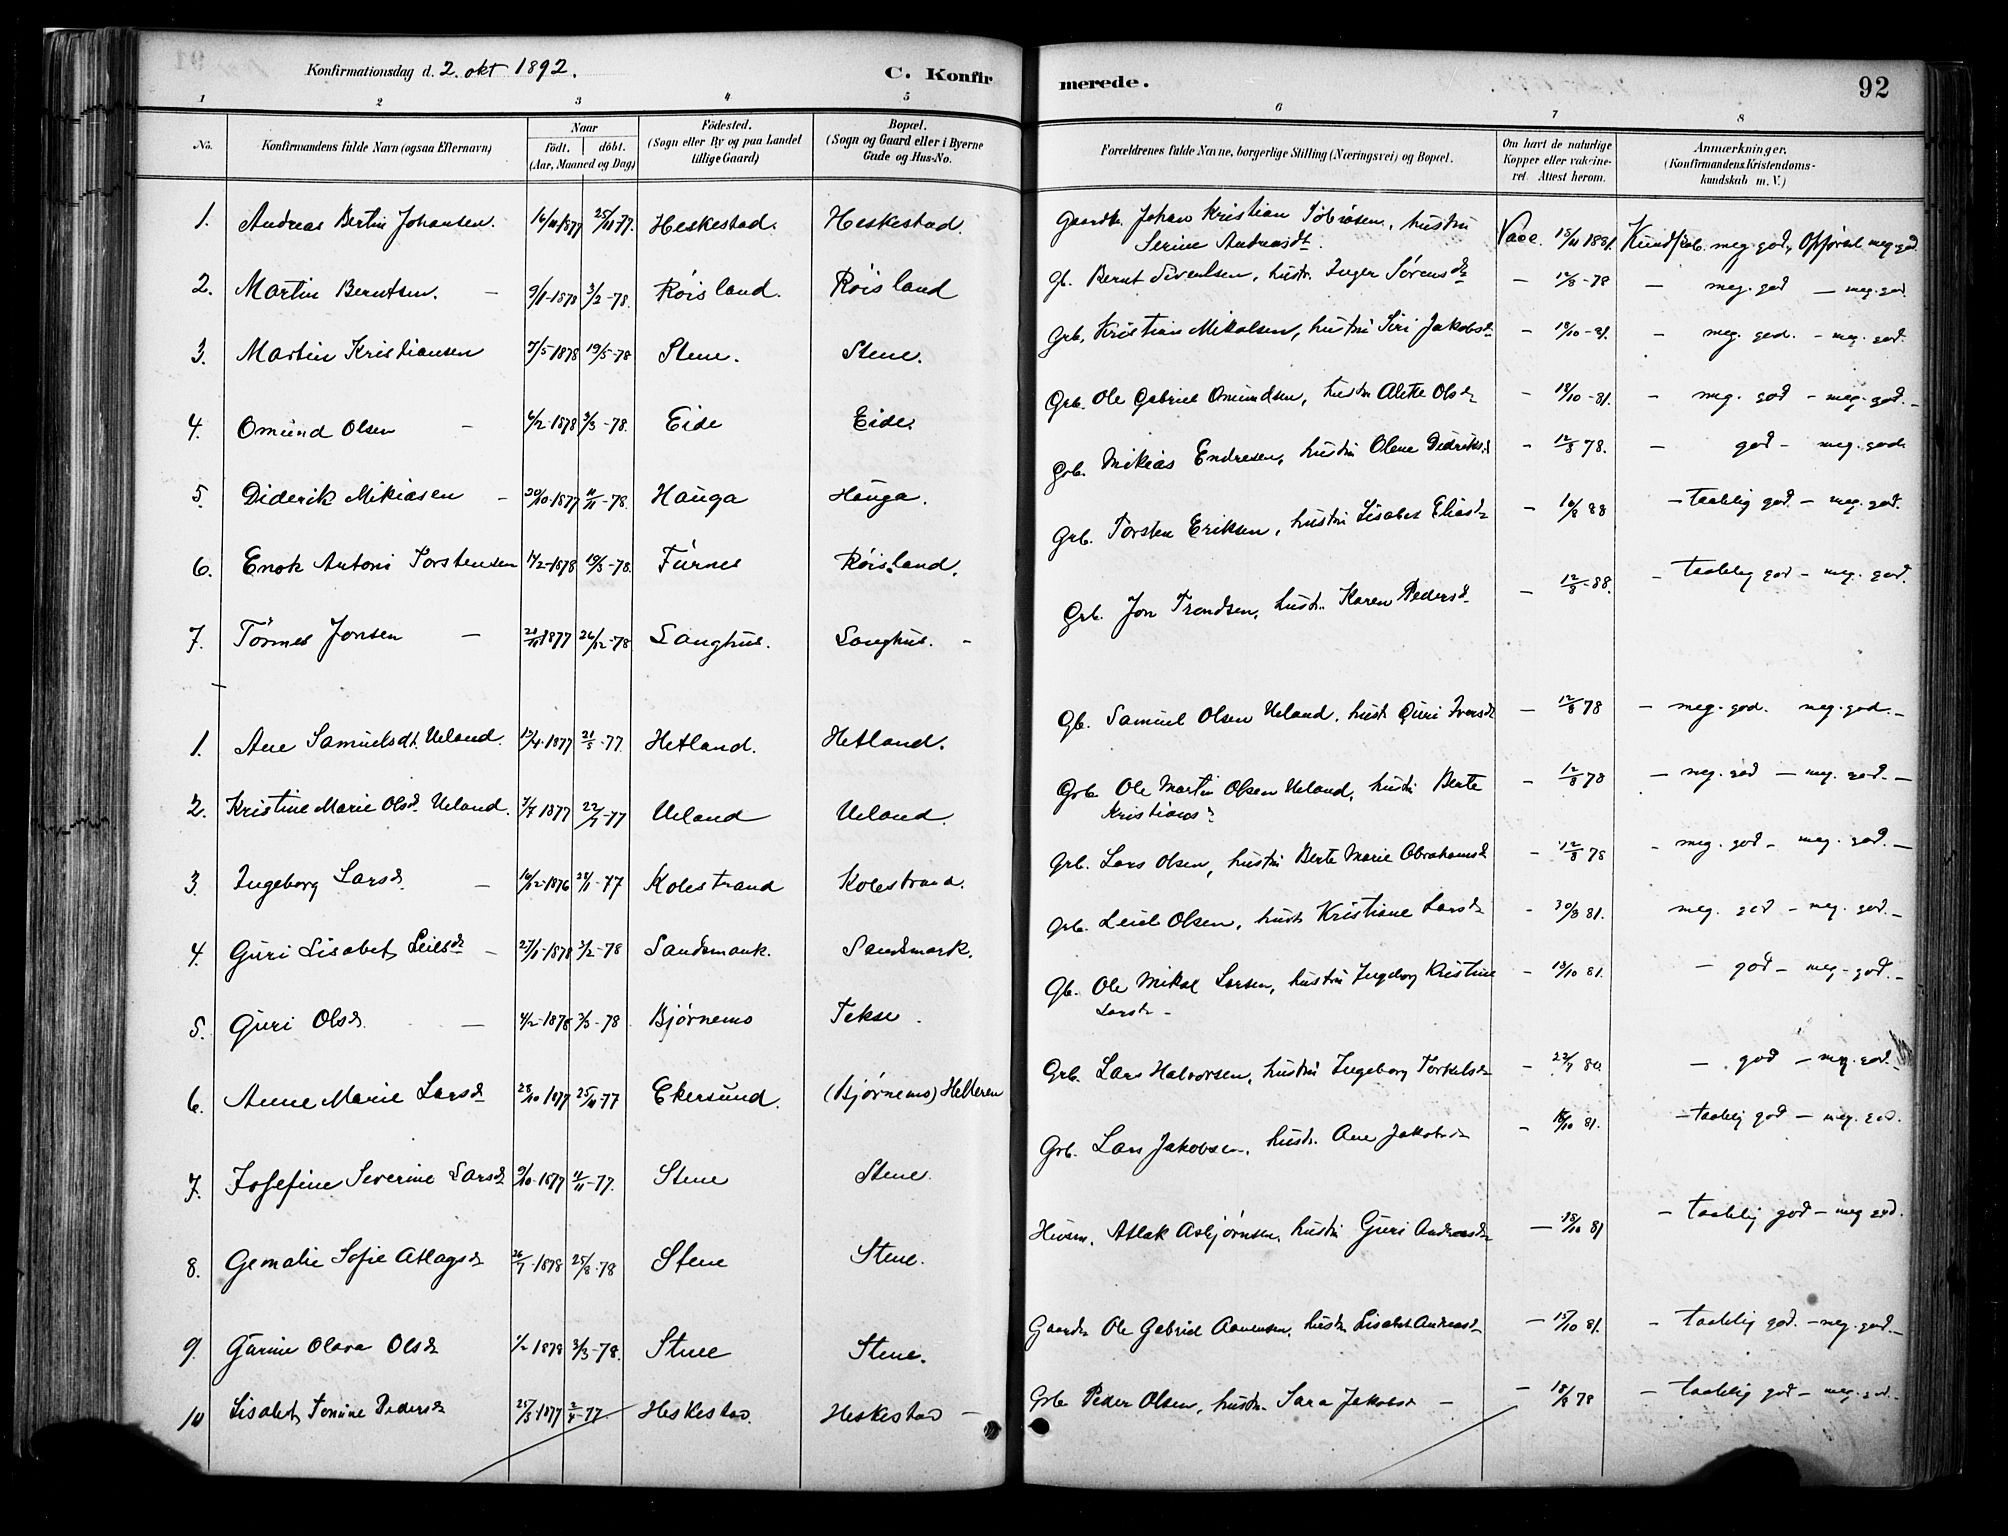 Konfirmationsdag d. 2. okt 1892.
C. Konfir
merede.
92
1 2 3 4 5 6 7 8
No.
Konfirmandens fulde Navn (ogsaa Efternavn)
Naar
født. døbt.
(Aar, Maaned og Dag)
Fødested.
(Sogn eller By og paa Landet
tillige Gaard)
Bopæl.
(Sogn og Gaard eller i Byerne
Gade og Hus-No.
Forældrenes fulde Navne, borgerlige Stilling (Næringsvei) og Bopæl.
Om havt de naturlige
Kopper eller vaccine-
ret. Attest herom.
Anmærkninger.
(Konfirmandens Kristendoms-
kundskab m. V.)
1. Andreas Bertin Johansen. 25/11-77. Heskestad. Heskestad. Johan Kristian hustru
Serine Andreasdt. Vacc. 1881. Kundskab. meg. god, Opførsel meg. god.
2. Martin Berntsen. - 3/2-78. Røisland. Røisland Gb. Bernt Sivertsen, hustr. Inger Sørensd - 12/8-78 - meg. god - meg. god.
3. Martin Kristiansen 7/5-1878 19/5-78 Stene. Stene. Grb. Kristian Mikalsen, hustru Siri Jakobsd - 18/10-81. - meg. god. - meg. god.
4. Omund Olsen - 6/2-1878 3/3-78. Eide Eide. Grb. Ole Gabriel Omundsen, hustru Alette Olsd - 18/10-81. - meg. god - meg. god. -
5. Diderik Mikiasen - 30/10-1877 -78. Hauga Hauga. Grb. Mikias Endresen, hustru Olene Didriksd - 12/8 78. - god - meg. god.
6. Enok Antoni Torstensen 17/2-1878 19/5-78. Furnes Røisland. Grb. Torsten Eriksen, hustru Lisabet Eliasd - 88 - taalelig god - meg. god.
7. Tørnes Jonsen - 1877 26/12-78 Langhus. Langhus. - Grb. Jon Trondsen, hustr. Karen Pedersd - 12/8-88. - taalelig god - meg. god.
1. Ane Samuelsdt. Ueland. 15/4-1877 21/5-77. Hetland. Hetland. Gb. Samuel Olsen Ueland, hust Guri Iversd - 12/8 78 - meg. god. meg. god. -
2. Kristine Marie Olsd. Ueland. 7/7 1877 22/7-77 Ueland Ueland. Grb Ole Martin Olsen Ueland, hustr Berte
Kristians - 12/8 78 - meg. god - meg. god. -
3. Ingeborg Larsd. - 16/12-1876 28/1-77 Kolestrand Kolestrand. Grb. Lars Olsen, hustru Berte Marie Abrahamsd - 12/8 78 - meg. god - meg. god. -
4. Guri Lisabet Leilsd - 27/1-1878 3/2-78 Sandsmark. Sandsmark. Grb. Leil Olsen, hustr Kristiane Larsd - 30/8 81. meg. god - meg. god. -
5. Guri Olsd. - 4/2-1878 3/3-78 Bjørnemo Tekse. Gb. Ole Mikal Larsen, hustru Ingeborg Kristine
Larsd - - 18/10 81. - god - meg. god. -
6. Anne Marie Larsd 28/10 1877 25/11-77 Ekersund. (Bjørnemo) Helleren Grb. Lars Halvorsen, hustru Ingeborg Torkelsd - - god - meg. god. -
7. Josefine Severine Larsd 9/10-1877 11/11-77. Stene Stene. Grb. Lars Jakobsen, hustr. Ane Jakobsd - 18/10 81. - taalelig god - meg. god.
8. Gemalie Sofie Atlagsd 1878 25/8-78 Stene Stene. Husm. Atlak Asbjørnsen, hustru Guri Andreasd - 18/10 81 - taalelig god - meg god.
9. Gurine Olava Olsd 1/2 1878 3/3-78. Stene Stene. Gaardb Ole Gabriel Aanensen, hustru Lisabet Andreasd - 18/10 81. - taalelig god. - meg. god. -
10 Lisabet Tomine Pedersd 25/3-1877 2/4-77 Heskestad. Heskestad - Grb Peder Olsen, hustr. Sara Jakobsd - - 18/8 78 - taalelig god - meg. god. -